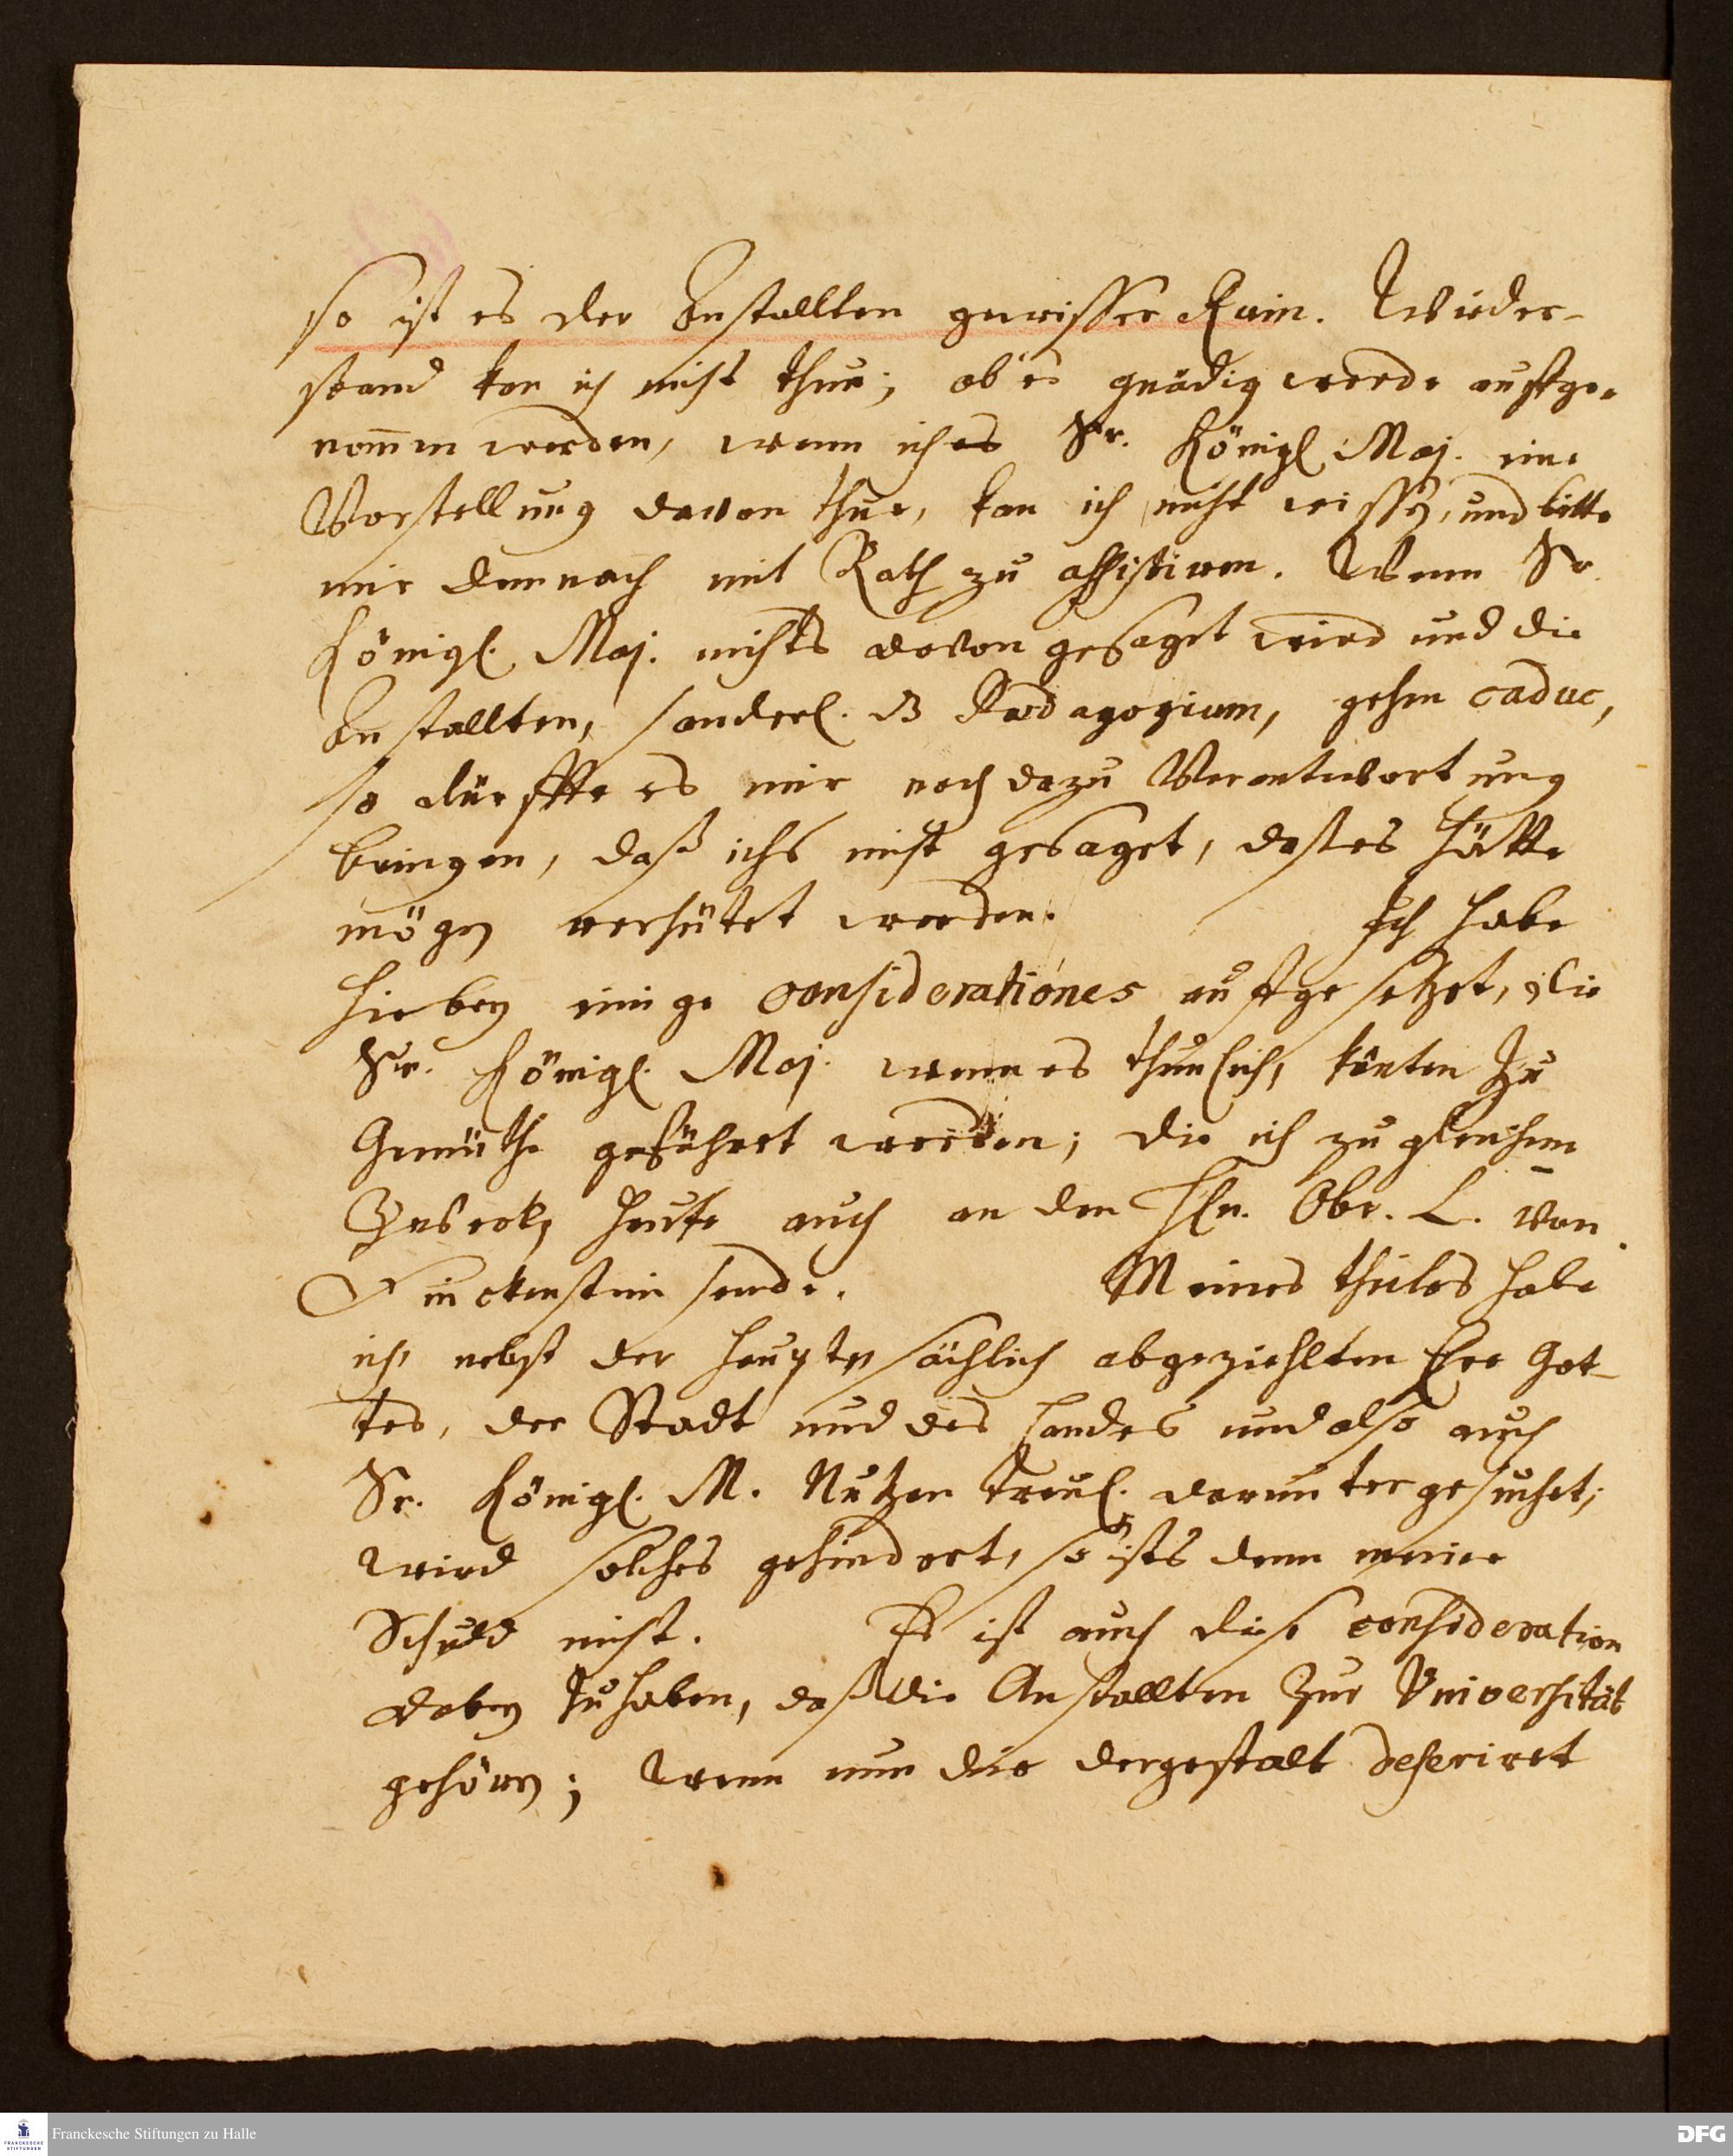 so ist es der Anstallten gewisser Ruin. Wieder-
stand kan ich nicht thun; ob es gnädig werde auffge-
nommen werden, wenn ich es Sr. Königl. Maj. eine
Vorstellung davon thue, kan ich nicht wissen, und bitte
mir demnach mit Rath zu assistiren. Wenn Sr.
Königl. Maj. nichts davon gesaget wird und die
Anstallten, sonderl. das Paedagogium, gehen caduc,
so dürffte es mir noch dazu Verantwortung
bringen, daß ichs nicht gesaget, daß es hätte
mögen verhütet werden. Ich habe
hiebey einige considerationes auffgesetzet, die
Sr. Königl. Maj. wenn es thunlich, könten zu
Gemüthe geführet werden; die ich zu gleichem
Zweck, heute auch an den Hln. Obr. L. von
Finckenstein sende. Meines theiles habe
ich, nebst der hauptsächlich abgeziehlten Ehre Got-
tes, der Stadt und des Landes und also auch
Sr. Königl. M. Nutzen treul. darunter gesuchet;
wird solches gehindert, so ists denn meine
Schuld nicht. Es ist auch diese consideration
dabey zu haben, daß die Anstallten zur Universität
gehören; wenn nun die dergestalt deseriret
Franckesche Stiftungen zu Halle
DFG
FRANCKESCHE
STIFTUNGEN